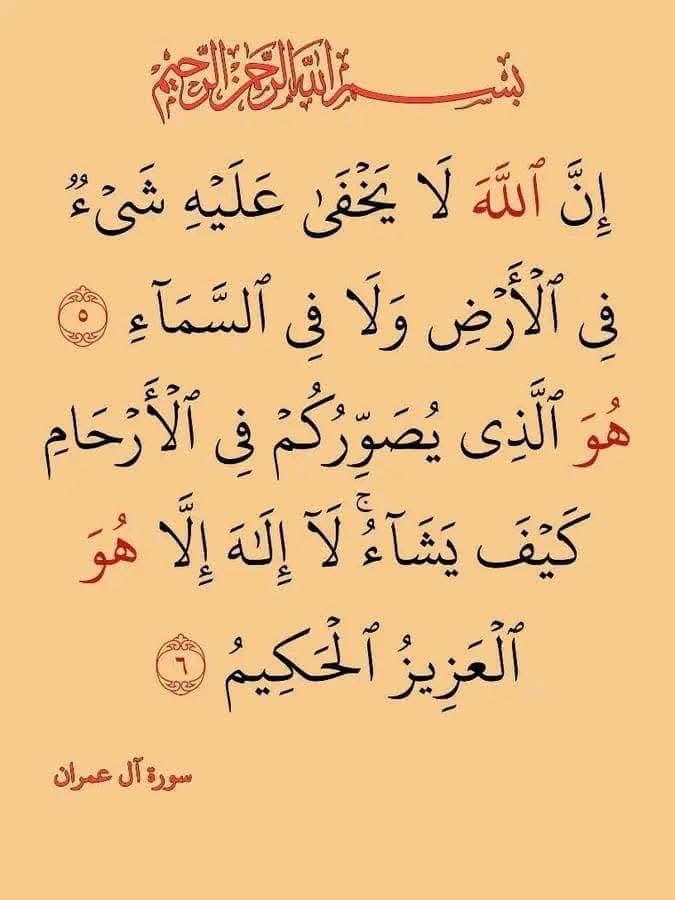 بسم الله الرحمن الرحيم
إِنَّ ٱللَّهَ لَا يَخْفَىٰ عَلَيْهِ شَىْءٌ
فِى ٱلْأَرْضِ وَلَا فِى ٱلسَّمَآءِ ٥
هُوَ ٱلَّذِى يُصَوِّرُكُمْ فِى ٱلْأَرْحَامِ
كَيْفَ يَشَآءُ ۚ لَآ إِلَـٰهَ إِلَّا هُوَ
ٱلْعَزِيزُ ٱلْحَكِيمُ ٦
سورة آل عمران